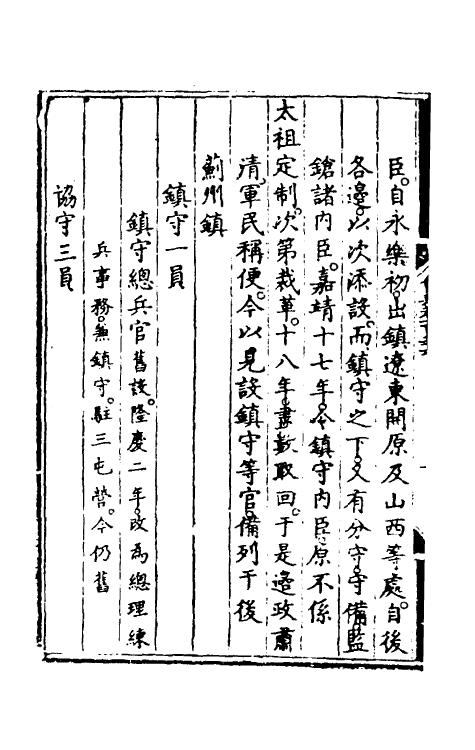 臣。自永樂初。出鎮遼東開原及山西等處。自後
各邊。以次添設。而鎮守之下。又有分守。守備監
鎗諸內臣。嘉靖十七年。令鎮守內臣。原不係
太祖定制。次第裁革。十八年。盡數取回。于是邊政肅
清。軍民稱便。今以見設鎮守等官。備列于後
薊州鎮
鎮守一員
鎮守總兵官舊設。隆慶二年。改為總理練
兵事務。兼鎮守。駐三屯營。今仍舊
協守三員